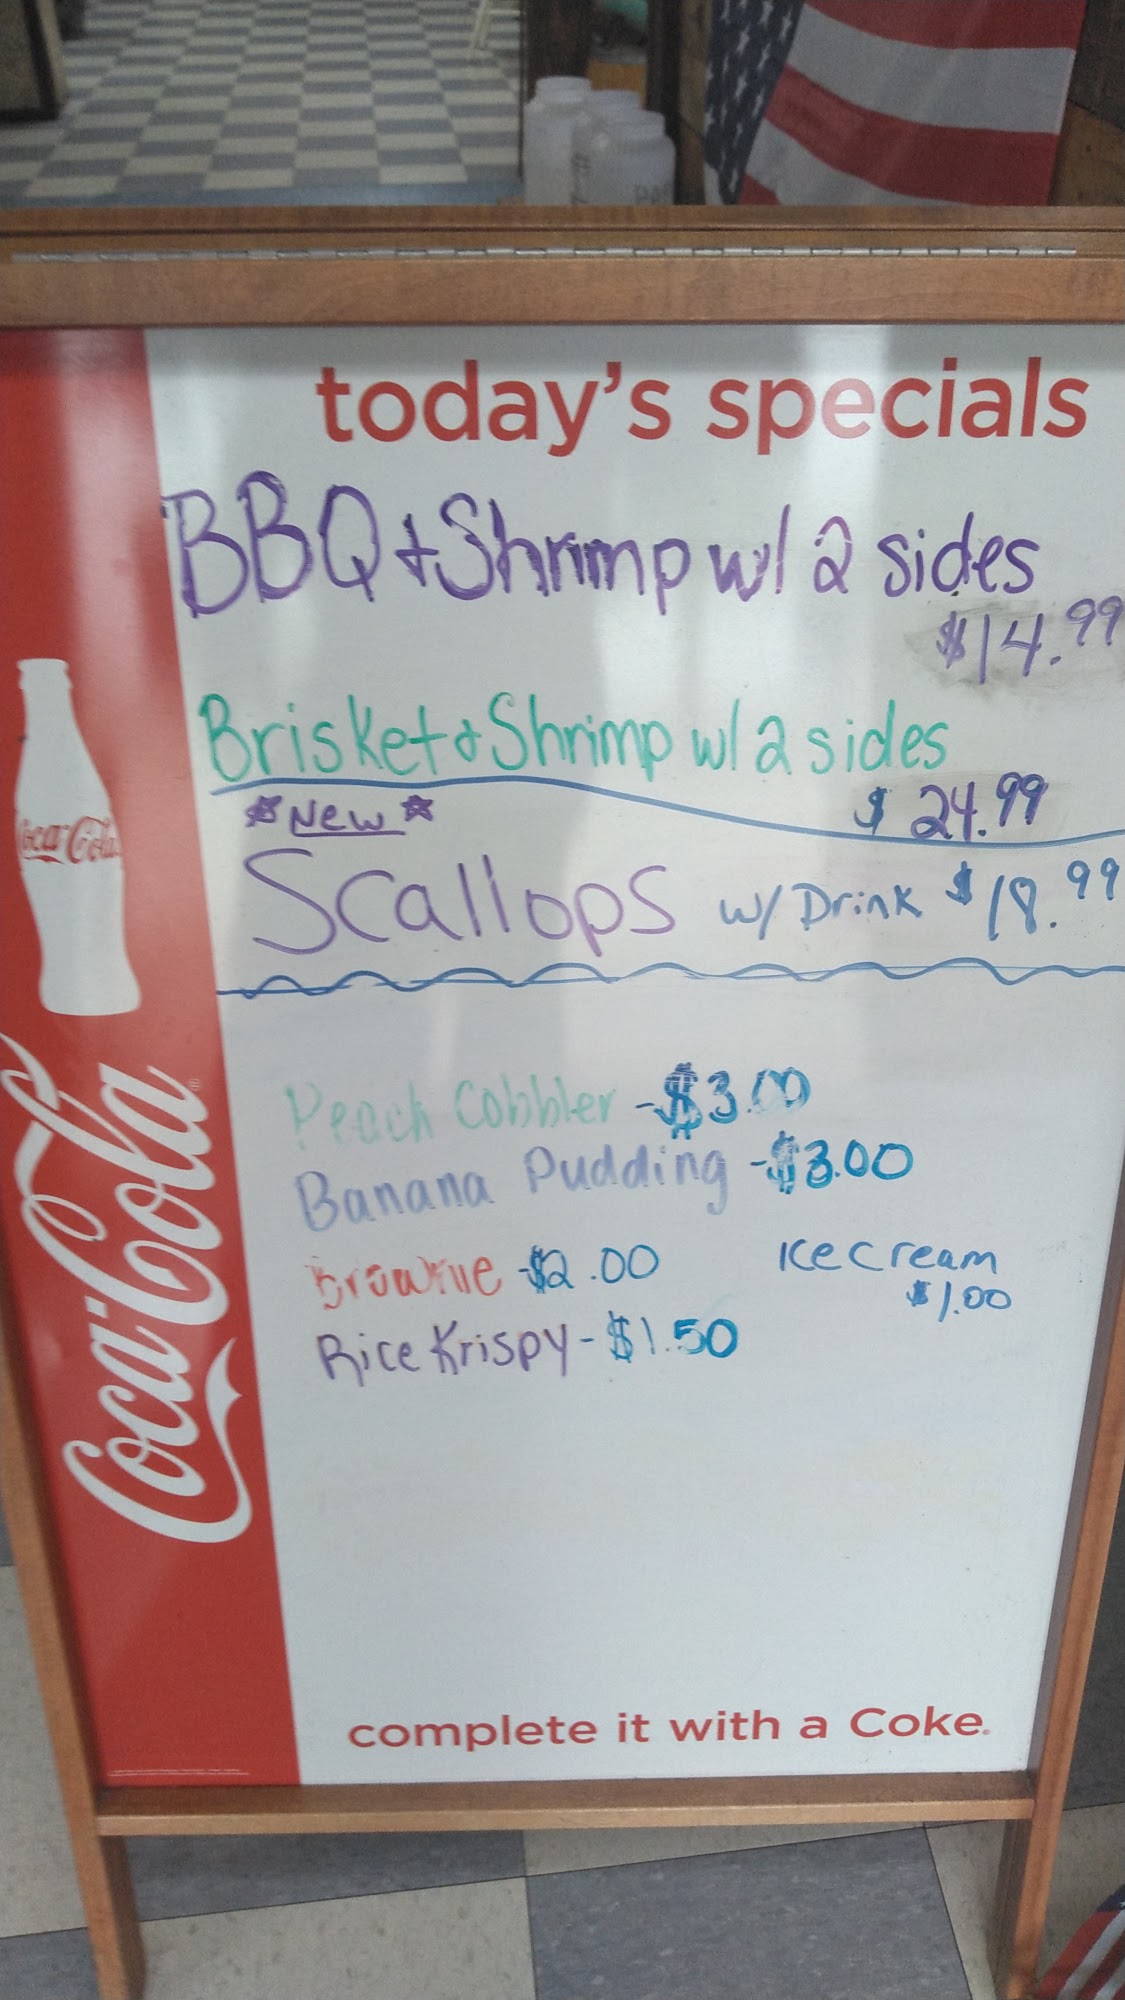 today's specials
BBQ + Shrimp w/ 2 sides
$14.99
Brisket + Shrimp w/ 2 sides
$24.99
*New*
Scallops w/ Drink $18.99
Peach Cobbler -$3.00
Banana Pudding -$3.00
Brownie -$2.00
Ice Cream
$1.00
Rice Krispy - $1.50
complete it with a Coke.
Coca-Cola
Coca-Cola